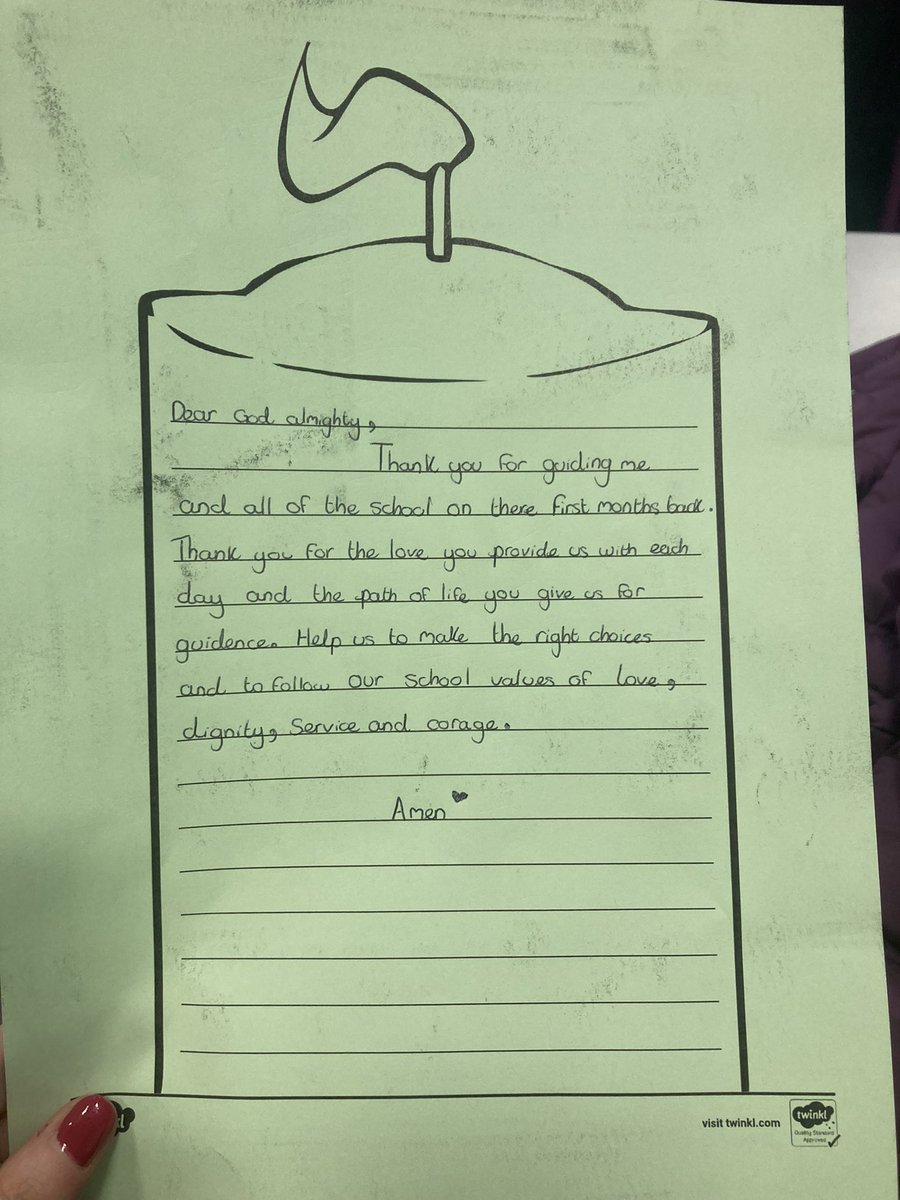 Dear God almighty,
Thank you for guiding me
and all of the school on there first months back.
Thank you for the love you provide us with each
day and the path of life you give us for
guidence. Help us to make the right choices
and to follow our school values of love,
dignity, Service and corage.
Amen
visit twinkl.com
twinkl
Quality Standard
Approved